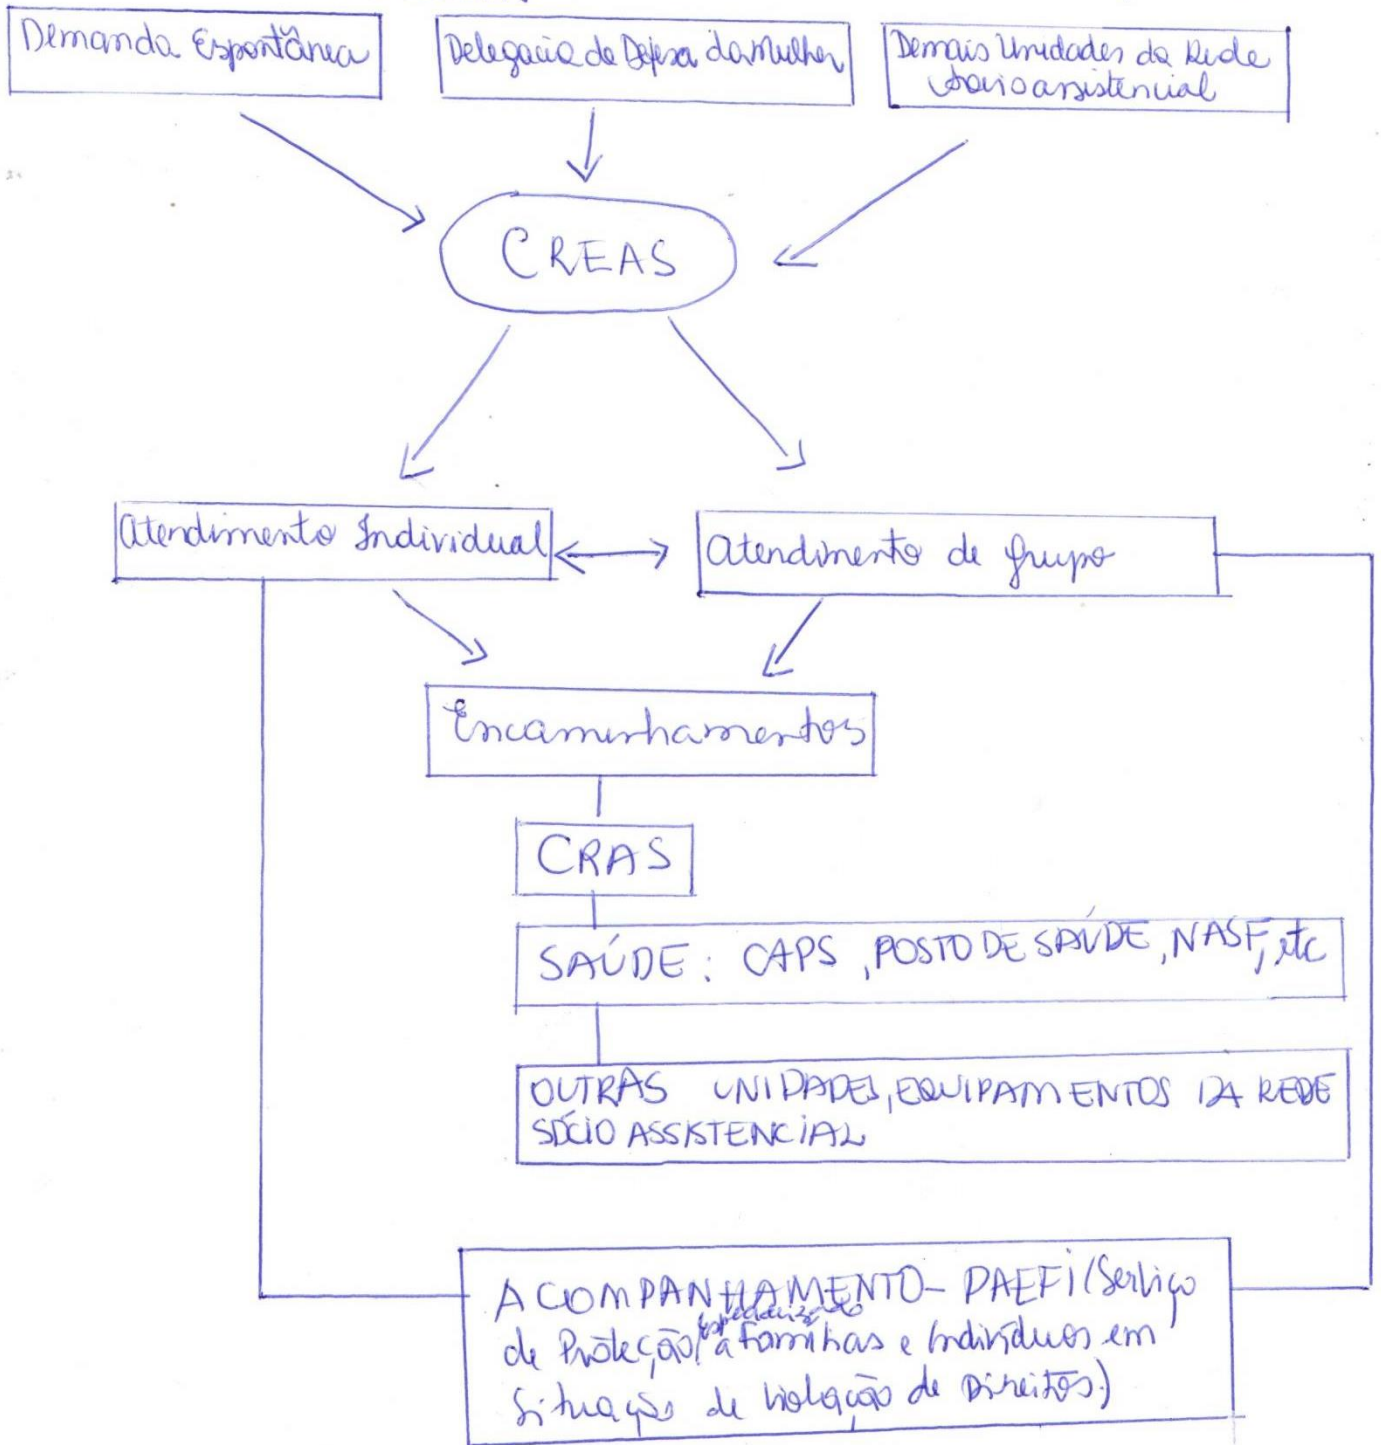 Demanda Espontânea
Delegacia de Defesa da Mulher
Demais Unidades da Rede
Socioassistencial
CREAS
Atendimento Individual
Atendimento de Grupo
Encaminhamentos
CRAS
SAÚDE: CAPS, POSTO DE SAÚDE, NASF, etc
OUTRAS UNIDADES, EQUIPAMENTOS DA REDE
SÓCIO ASSISTENCIAL
ACOMPANHAMENTO - PAEFI (Serviço
de Proteção especializado a Famílias e Indivíduos em
Situação de Violação de Direitos)